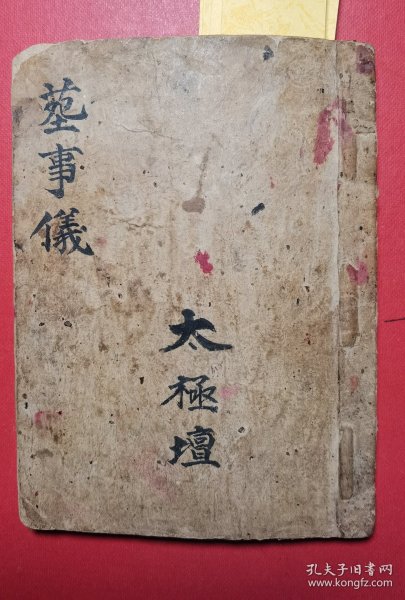 塟事儀
太極壇
孔夫子旧书网
www.kongfz.com